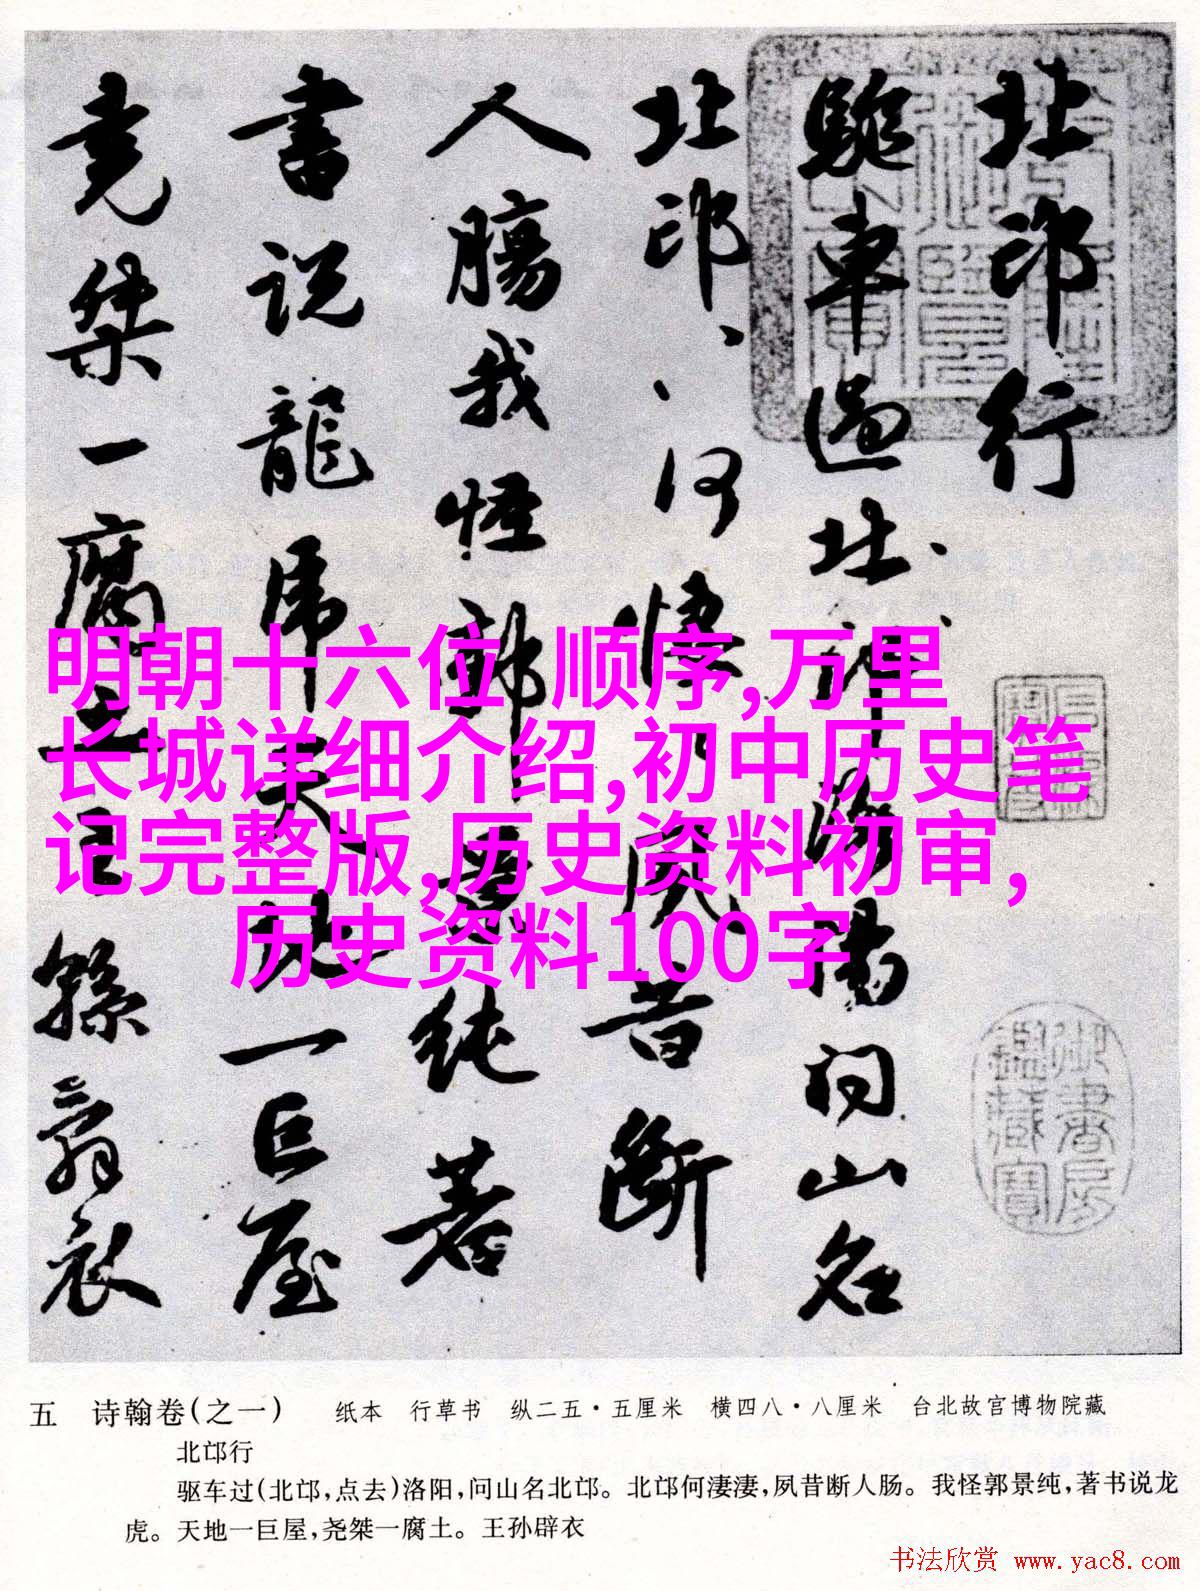 北邙行
驅車過北邙洛陽問山名
北邙、、何悽、夙昔斷
人腸我怪郭景純著
書説龍虎天地一巨屋
堯桀一腐土王孫辟衣
明朝十六位 顺序,万里
长城详细介绍,初中历史笔
记完整版,历史资料初审,
历史资料100字
御書房鑑藏寶
五 诗翰卷(之一) 纸本 行草书 纵二五·五厘米 横四八·八厘米 台北故宫博物院藏
北邙行
驱车过(北邙,点去)洛阳,问山名北邙。北邙何凄凄,夙昔断人肠。我怪郭景纯,著书说龙
虎。天地一巨屋,尧桀一腐土。王孙辟衣
书法欣赏 www.yac8.com